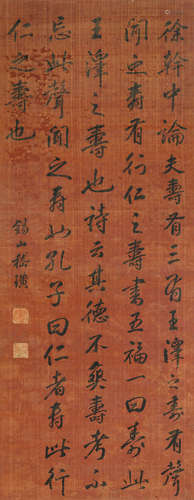 徐幹中論夫壽有三有王澤之壽有聲
聞之壽有行仁之壽書五福一曰壽此
王澤之壽也詩云其德不爽壽考不
忘此聲聞之壽也孔子曰仁者壽此行
仁之壽也
錫山嵇璜